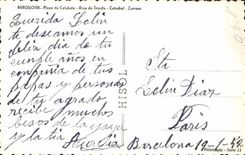 BARCELONA - Plaza de Cataluña - Arco de Triunfo - Catedral - Correos
Querida Lolin
te deseamos un
feliz dia de tu
cumple años en
compañia de tus
papas y personas
de tu agrado
recibe muchos
besos de la yaya
y la tia
Sta
Lolin Diaz
Paris
Barcelona 12-1-48